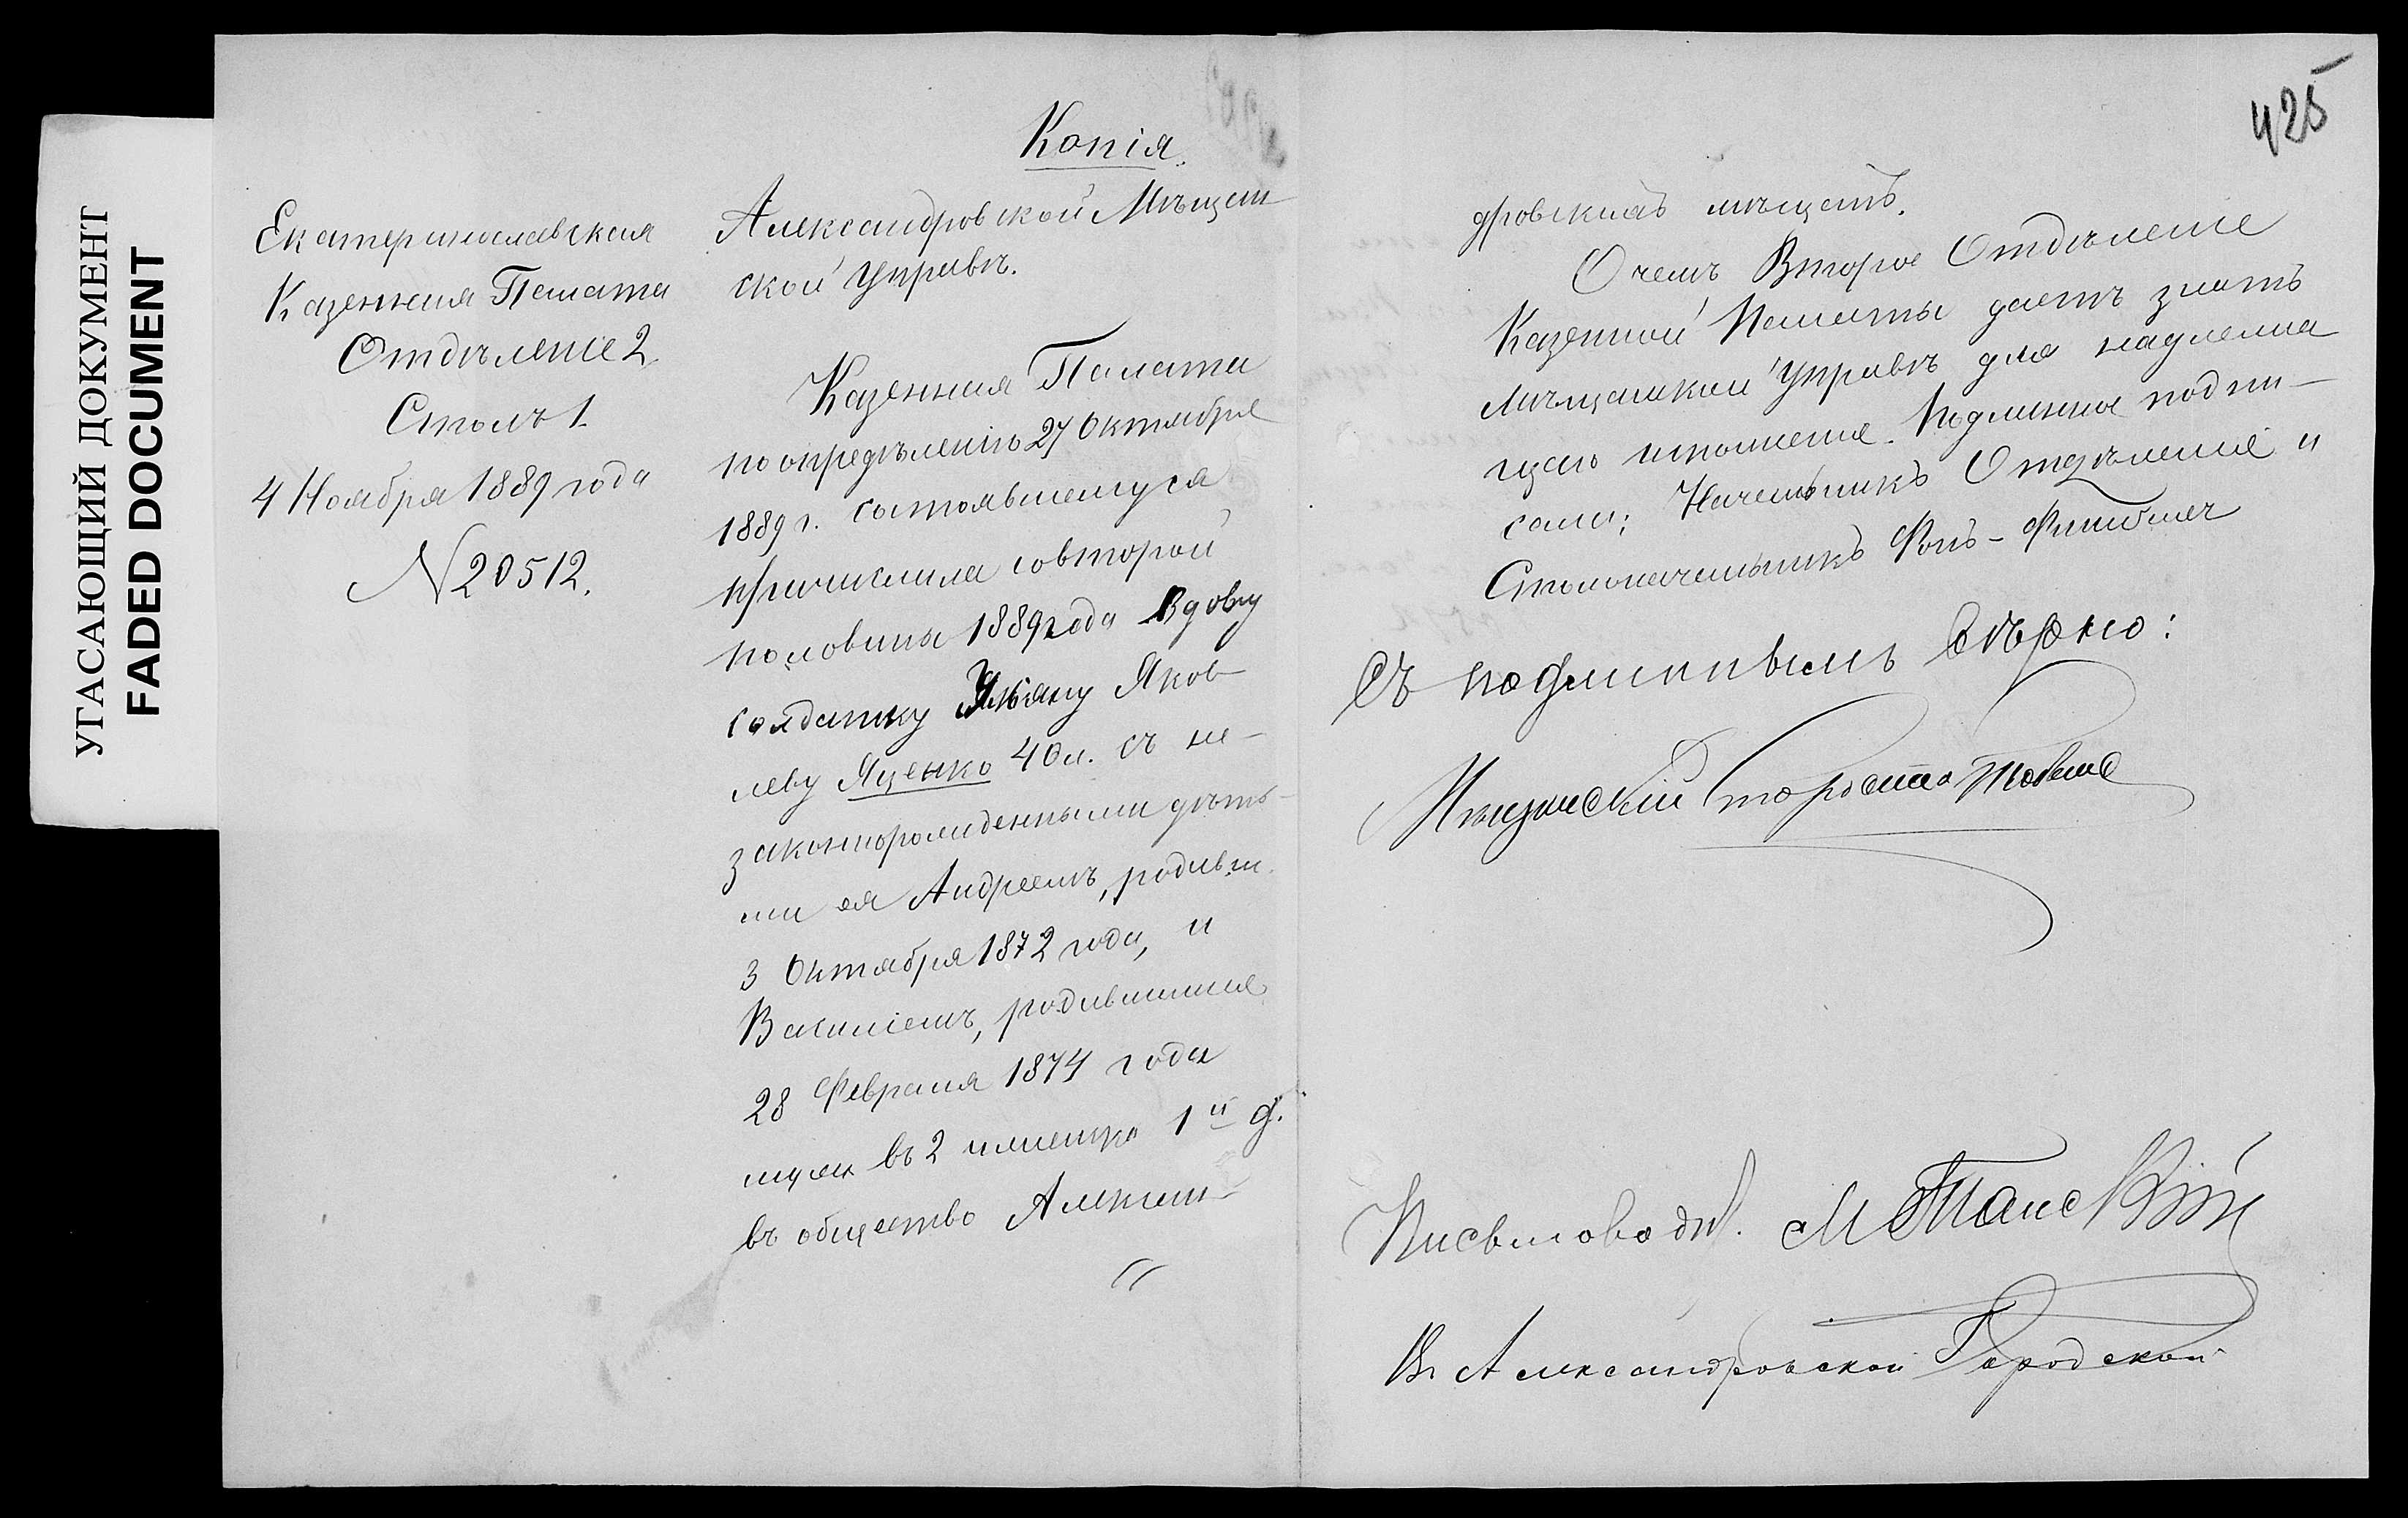 УГАСАЮЩИЙ ДОКУМЕНТ
FADED DOCUMENT
Копія.
Екатеринославская
Казенная Палата
Отдѣленіе 2
Столъ 1.
4 Ноября 1889 года
N 20512.
Александровской Мѣщан
ской Управѣ.
Казенная Палата
по опредѣленію 27 Октября
1889 г. состоявшемуся
причислила со второй
половины 1889 года Вдову
солдатку Ульяну Яков
леву Яценко 40 л. съ не-
законнорожденными дѣть-
ми ея Андреемъ, родивш.
3 Октября 1872 года, и
Василіемъ, родившимся
28 Февраля 1874 года
въ 2 1й
въ общество Алексан-
425
дровскихъ мѣщанъ.
О чемъ Второе Отдѣленіе
Казенной Палаты даетъ знать
Мѣщанской Управѣ для надлежа
щаго исполненія. Подлинное подпи-
сали: Начальникъ Отдѣленія и
Столоначальникъ Фонъ-
Съ подлиннымъ вѣрно:
Мѣщанскій Староста
Письмовод. М
Въ Александровской Городской